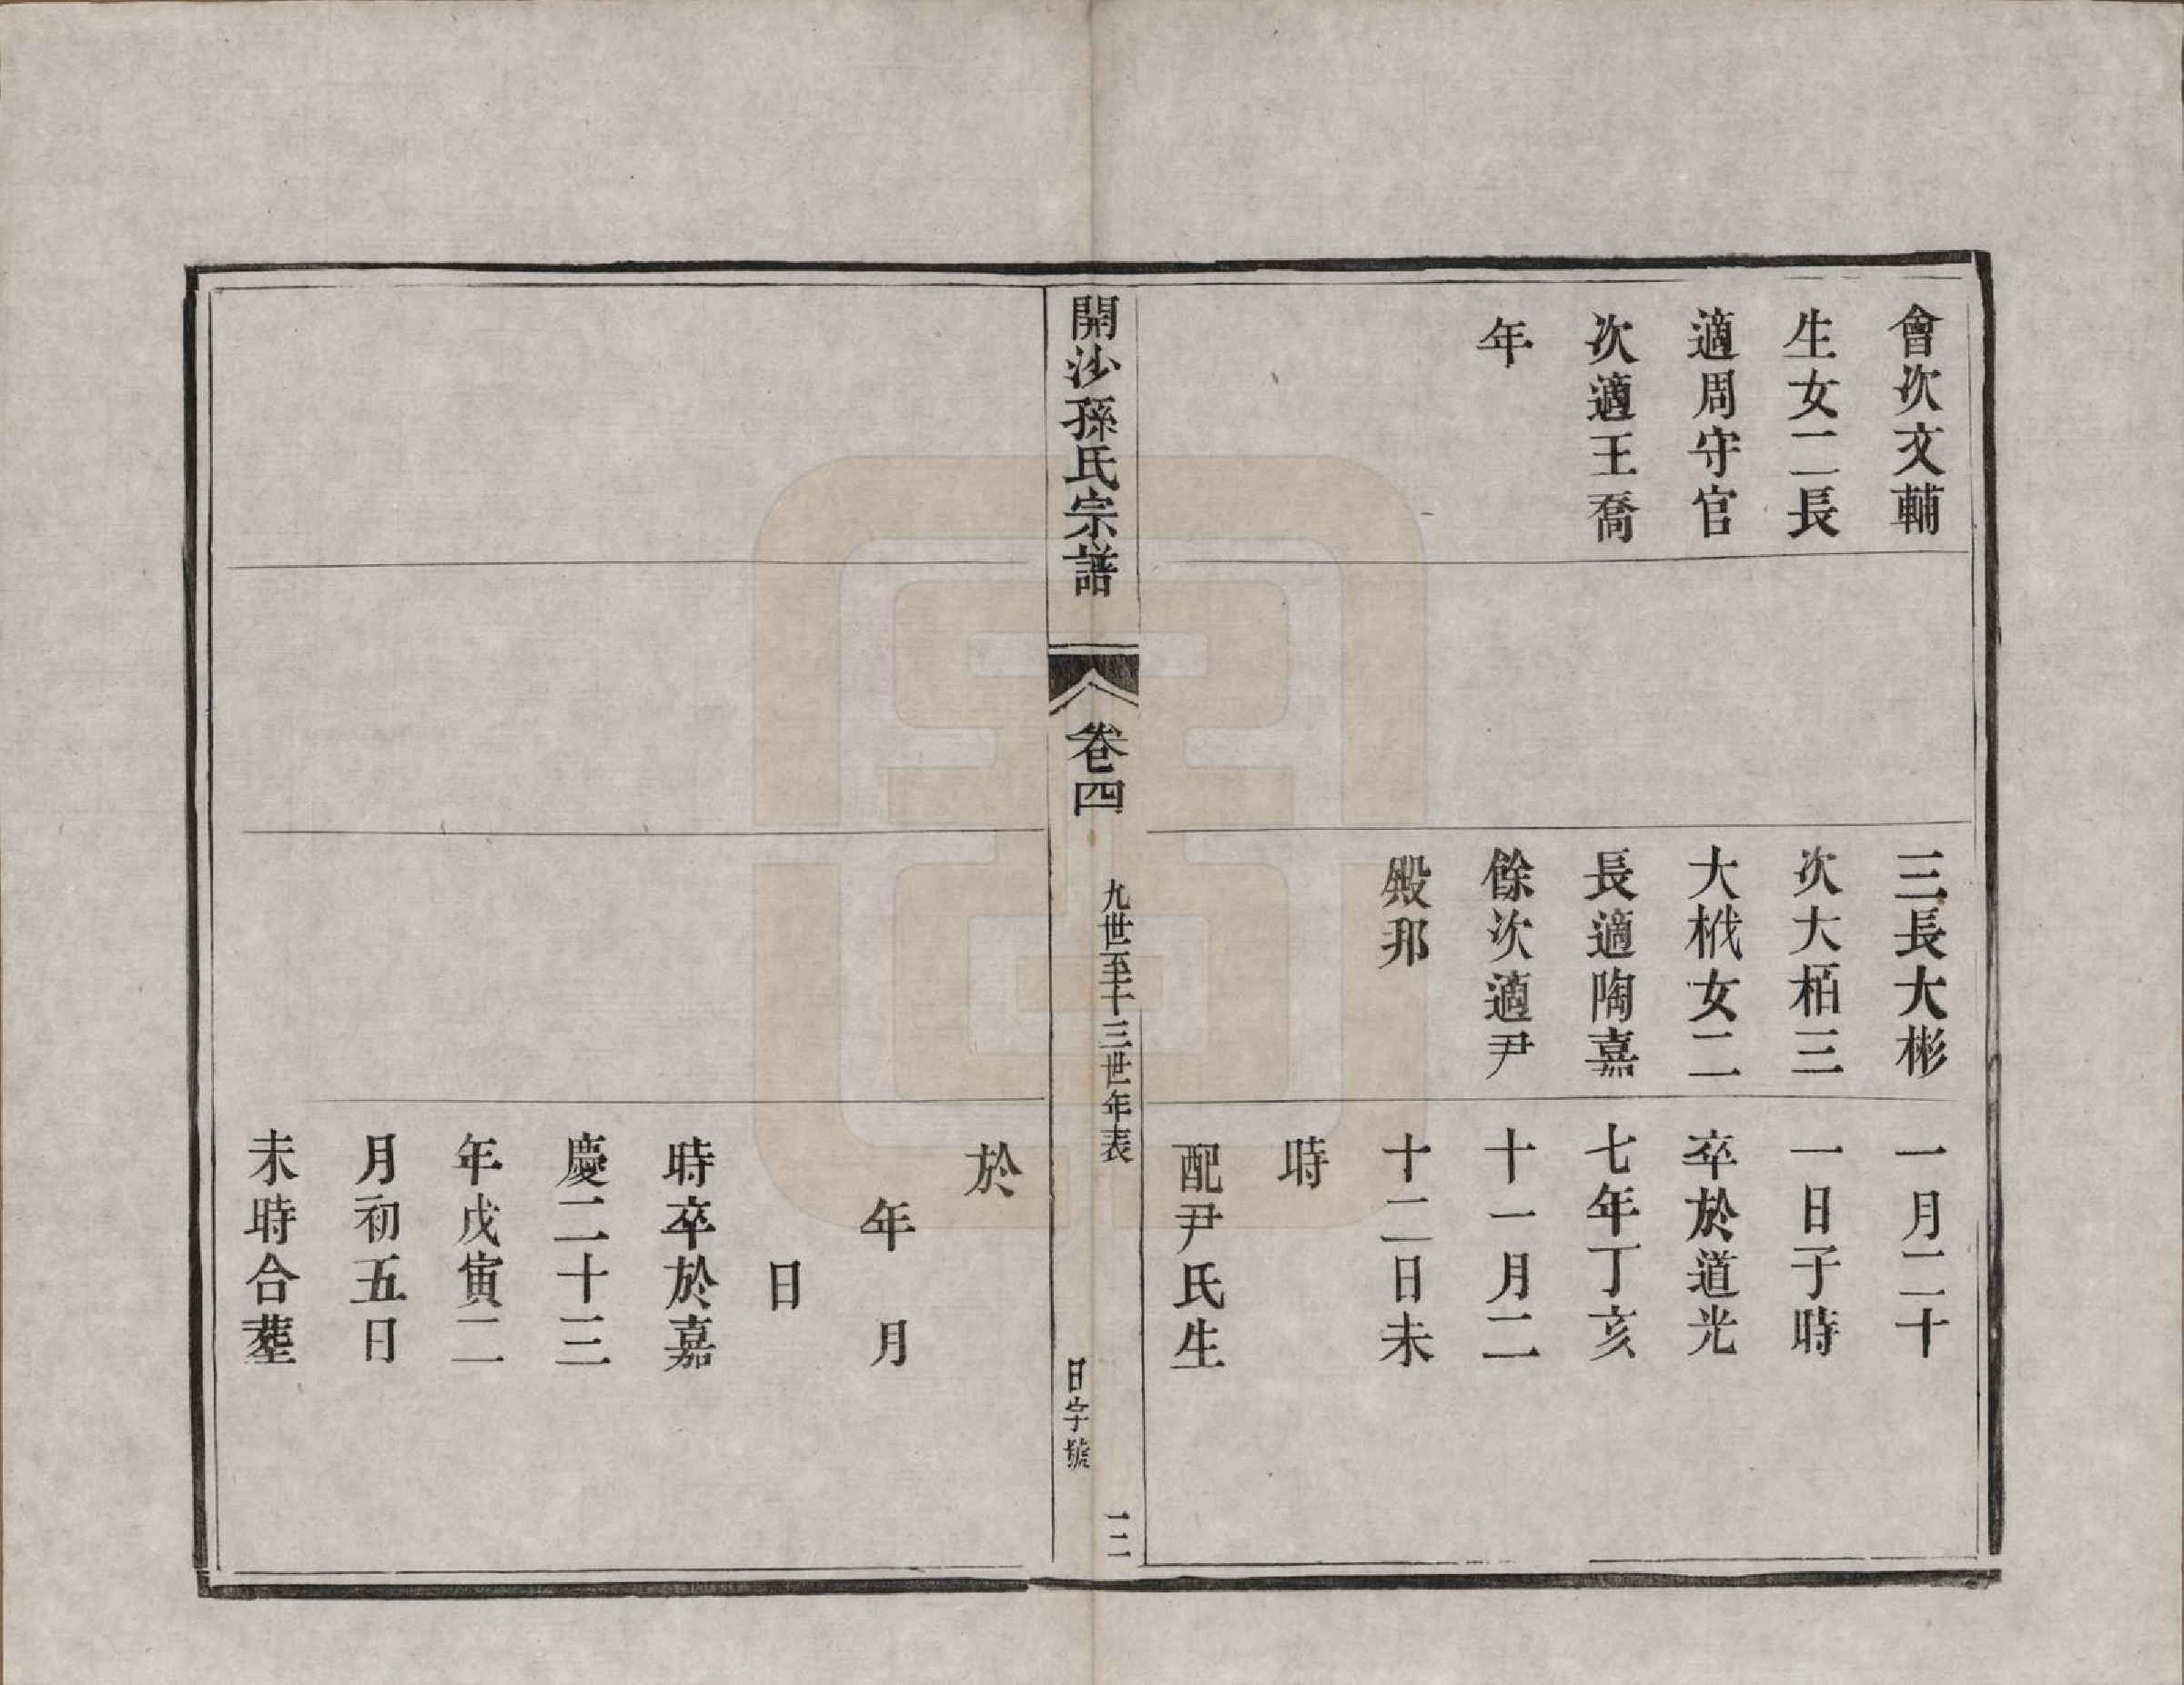 會次文輔
生女二長
適周守官
次適王喬
年
三長大彬
次大栢三
大栰女二
長適陶嘉
餘次適尹
殿邦
一月二十
一日子時
卒於道光
七年丁亥
十一月二
十二日未
時
配尹氏生
開沙孫氏宗譜
卷四
九世至十三世年表
日字號
十二
於
年　月
日
時卒於嘉
慶二十三
年戊寅二
月初五日
未時合塟